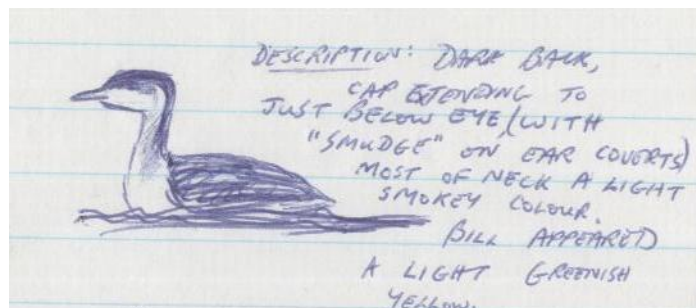 DESCRIPTION: DARK BACK,
CAP EXTENDING TO
JUST BELOW EYE, (WITH
"SMUDGE" ON EAR COVERTS)
MOST OF NECK A LIGHT
SMOKEY COLOUR.
BILL APPEARED
A LIGHT GREENISH
YELLOW.